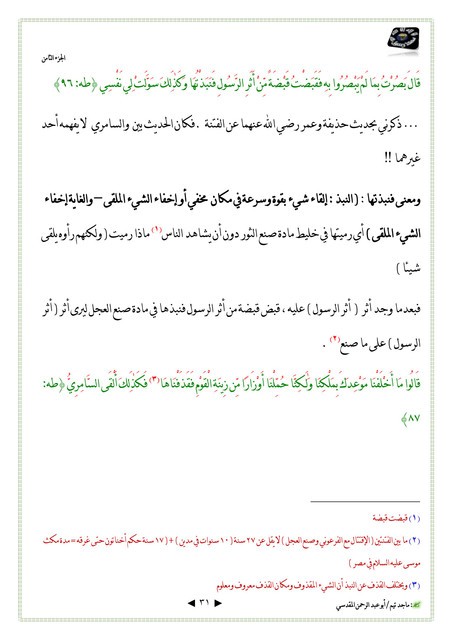 الجزء الثامن
قَالَ بَصُرْتُ بِمَا لَمْ يَبْصُرُوا بِهِ فَقَبَضْتُ قَبْضَةً مِّنْ أَثَرِ الرَّسُولِ فَنَبَذْتُهَا وَكَذَلِكَ سَوَّلَتْ لِي نَفْسِي ﴿طه: ٩٦﴾
... ذكرني بحديث حذيفة وعمر رضي الله عنهما عن الفتنة . فكان الحديث بين والسامري لايفهمه أحد
غيرهما !!
ومعنى فنبذتها : ( النبذ : إلقاء شيء بقوة وسرعة في مكان مخفي أو إخفاء الشيء الملقى – والغاية إخفاء
الشيء الملقى ) أي رميتها في خليط مادة صنع الثور دون أن يشاهد الناس (١) ماذا رميت ( ولكنهم رأوه يلقى
شيئا )
فبعدما وجد أثر ( أثر الرسول ) عليه ، قبض قبضة من أثر الرسول فنبذها في مادة صنع العجل ليرى أثر ( أثر
الرسول ) على ما صنع (٢) .
قَالُوا مَا أَخْلَفْنَا مَوْعِدَكَ بِمَلْكِنَا وَلَكِنَّا حُمِّلْنَا أَوْزَارًا مِّن زِينَةِ الْقَوْمِ فَقَذَفْنَاهَا (٣) فَكَذَلِكَ أَلْقَى السَّامِرِيُّ ﴿طه:
٨٧﴾
(١) قبضت قبضة
(٢) ما بين الفتنتين ( الإقتتال مع الفرعوني وصنع العجل ) لا يقل عن ٢٧ سنة ( ١٠ سنوات في مدين ) + ( ١٧ سنة حكم أخناتون حتى غرقه = مدة مكث
موسى عليه السلام في مصر )
(٣) ويختلف القذف عن النبذ أن الشيء المقذوف ومكان القذف معروف ومعلوم
: ماجد تيم / أبو عبد الرحمن المقدسي
◄ ٣١ ►